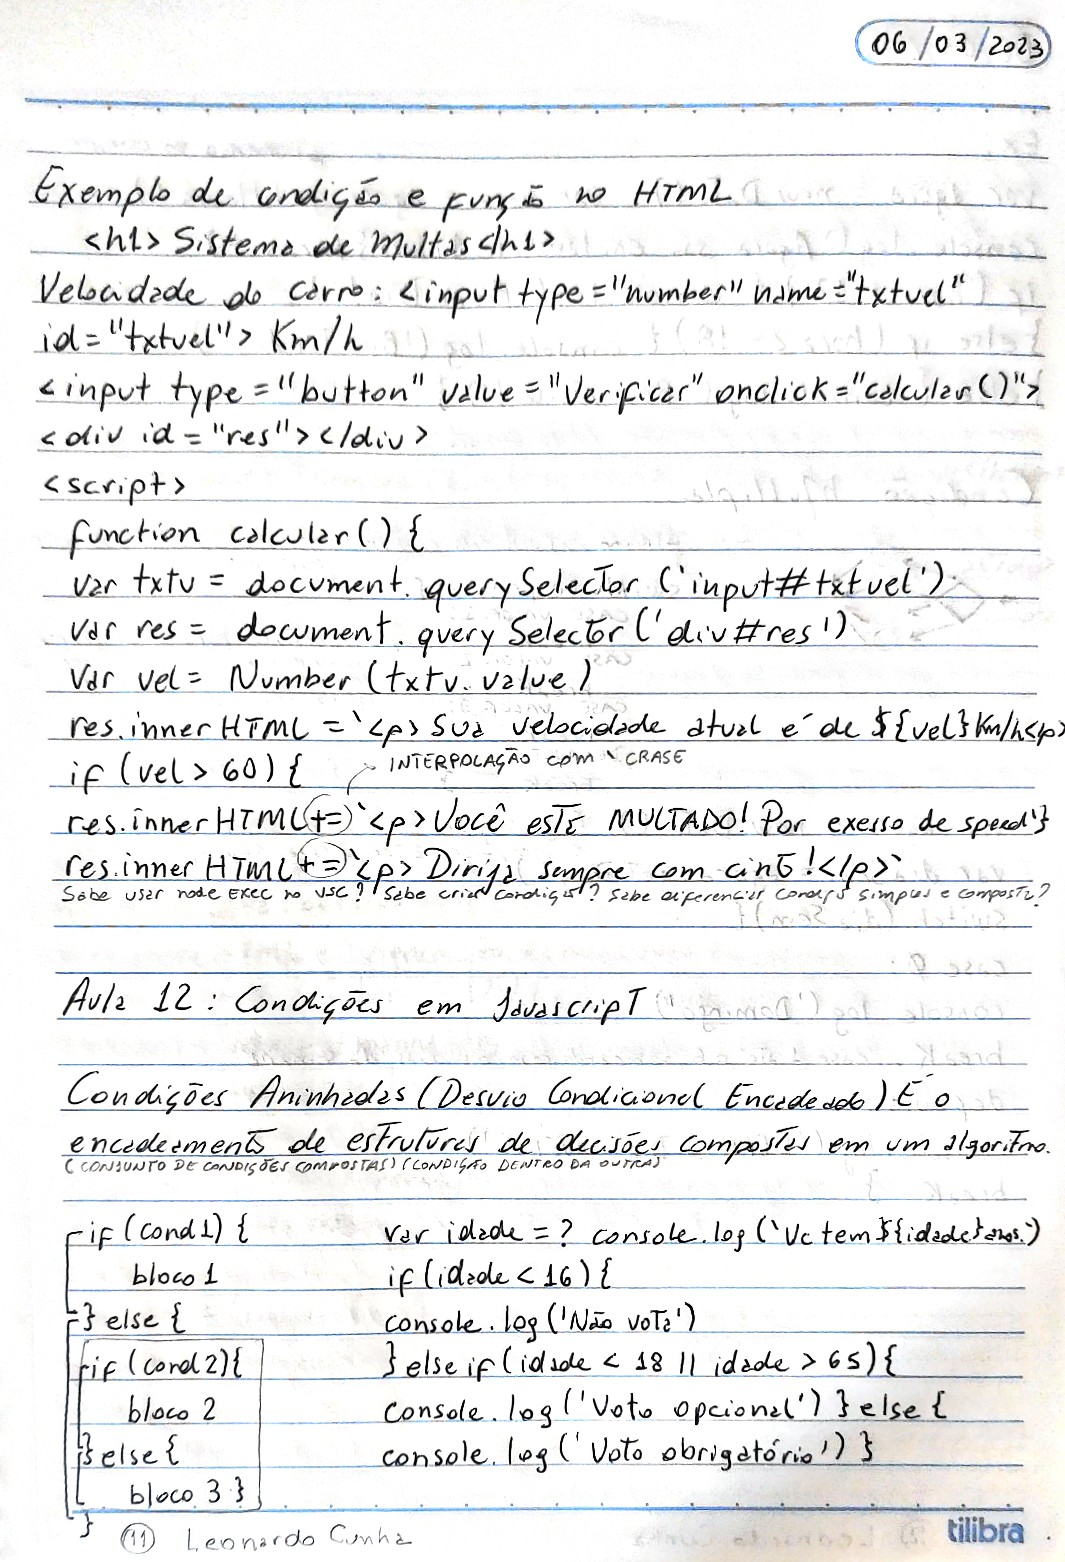 06/03/2023
Exemplo de condição e função no HTML
<h1> Sistema de Multas</h1>
Velocidade do carro: <input type="number" name="txtvel"
id="txtvel"> Km/h
<input type="button" value="Verificar" onclick="calcular()">
<div id="res"></div>
<script>
function calcular() {
var txtv = document.querySelector('input#txtvel')
var res = document.querySelector('div#res')
Var vel = Number(txtv.value)
res.innerHTML = `<p> Sua velocidade atual é de ${vel}Km/h<p>
if (vel > 60) { INTERPOLAÇÃO com ` CRASE
res.innerHTML += `<p> Você está MULTADO! Por exesso de speed'}
res.innerHTML += `<p> Dirija sempre com cinto!</p>`
Sabe usar node EXEC no VSC? Sabe criar condição? Sabe diferenciar condição simples e composta?
Aula 12: Condições em Javascript
Condições Aninhadas (Desvio Condicional Encadeado) É o
encadeamento de estruturas de decisões compostas em um algoritmo.
(CONJUNTO DE CONDIÇÕES COMPOSTAS) (CONDIÇÃO DENTRO DA OUTRA)
if (cond1) { var idade = ? console.log(`Vc tem ${idade} anos.`)
bloco 1 if (idade < 16) {
} else { console.log('Não vota')
if (cond2){ } else if (idade < 18 || idade > 65) {
bloco 2 console.log('Voto opcional') } else {
} else { console.log('Voto obrigatório') }
bloco 3 }
}
11 Leonardo Cunha
tilibra